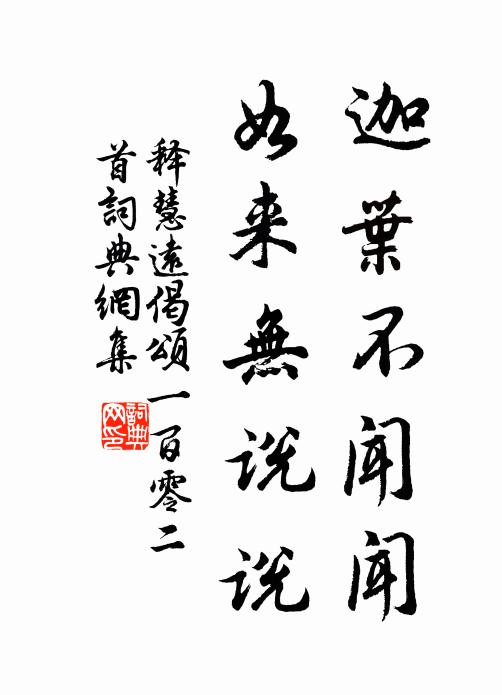 迦葉不聞聞
如来無説説
释慧遠偈頌一百零二
首詞典網集
詞典網印